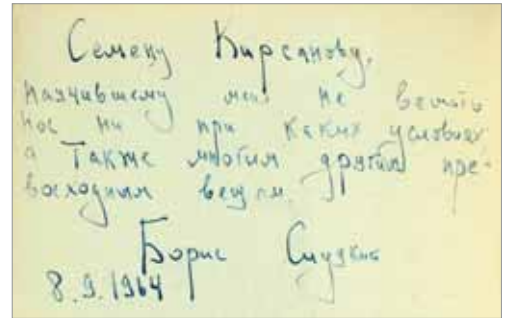 Семену Кирсанову,
научившему меня не вешать
нос ни при каких условиях
а также многим другим пре-
восходным вещам.
Борис Слуцкий
8.9.1964